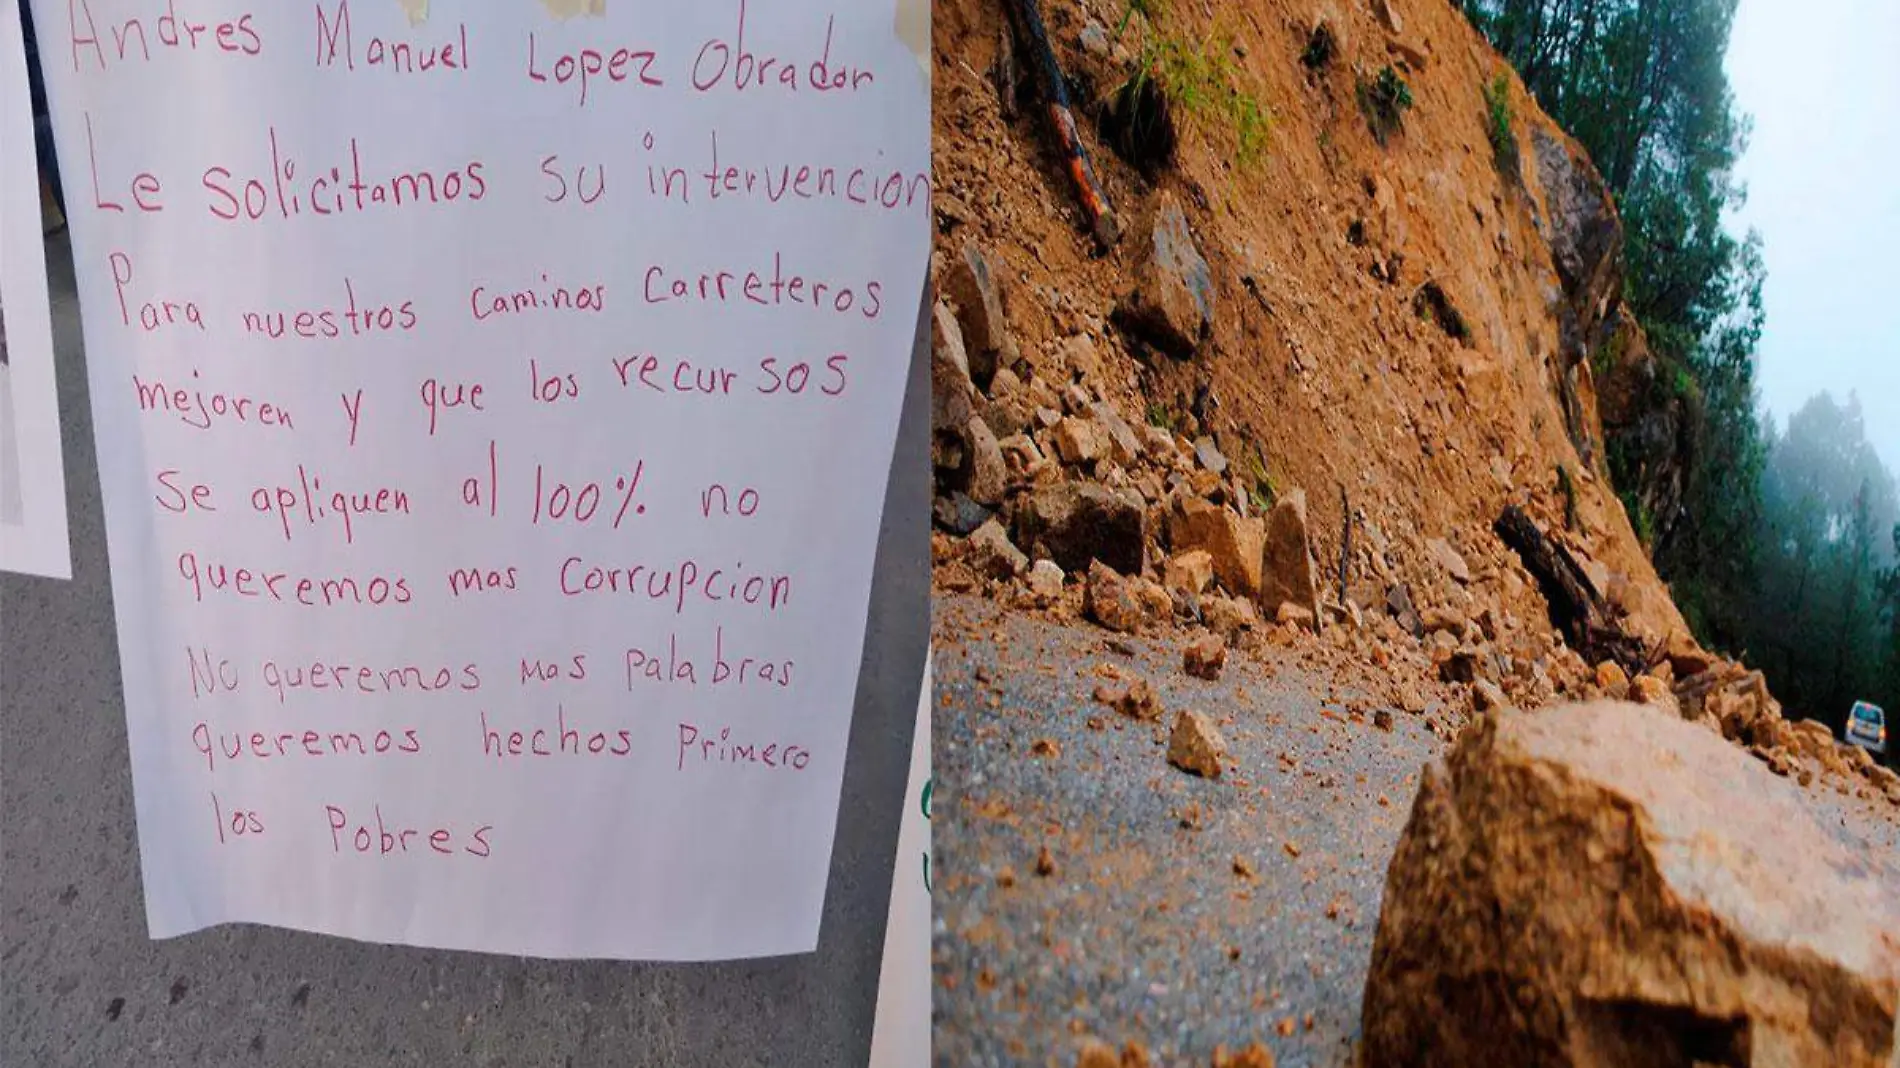 Andres Manuel Lopez Obrador
Le solicitamos su intervencion
Para nuestros caminos carreteros
mejoren y que los recursos
se apliquen al 100% no
queremos mas corrupcion
No queremos mas palabras
queremos hechos primero
los Pobres